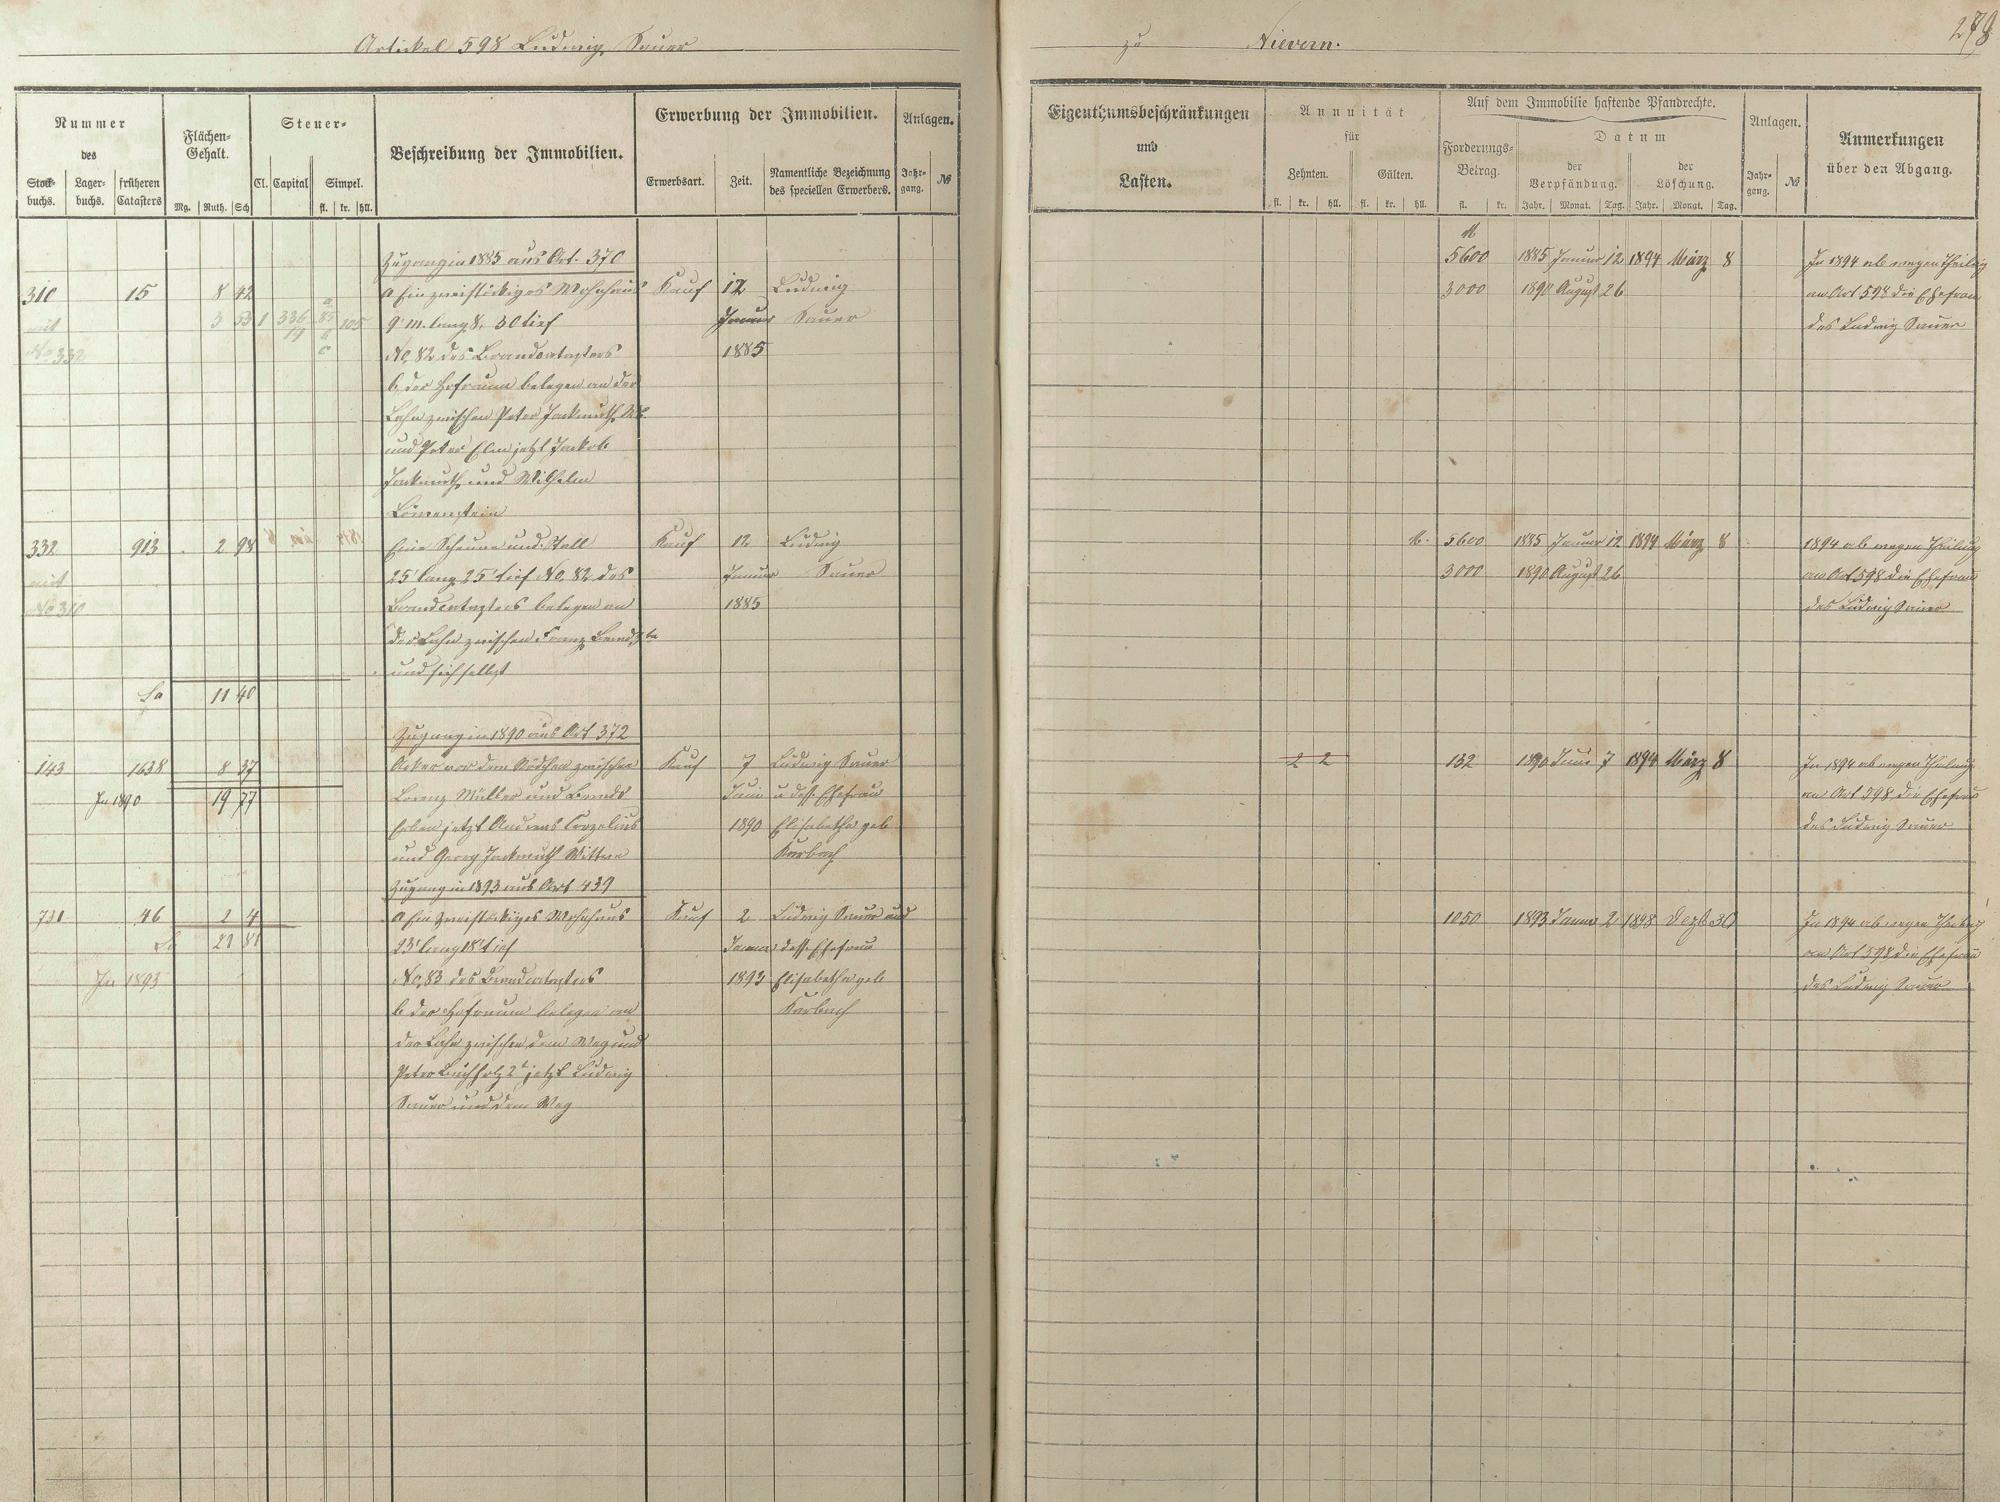 Artikel 598 Ludwig Sauer
Nummer
des
Stockbuchs.
Lagerbuchs.
früheren Catasters
Flächen-Gehalt.
Mg. Ruth. Sch
Steuer-
Cl. Capital Simpel.
fl. kr. hll.
Beschreibung der Immobilien.
Erwerbung der Immobilien.
Erwerbsart. Zeit. Namentliche Bezeichnung
des speciellen Erwerbers.
Anlagen.
Jahrgang. №
Zugang in 1885 aus Art. 370
310 15 8 42 a Ein zweistöckiges Wohnhaus Kauf 12 Ludwig
mit 3 53 1 336 lang 8, 30 tief Januar Sauer
No 332 No. 82 des Brandcatasters 1885
b, der Hofraum belegen an der
Lahn zwischen Peter Jackmuth
und Peter jetzt Jackob
Jackmuth und Wilhelm
Löwenstein
332 913 2 98 Eine Scheune und Stall Kauf 12 Ludwig
mit 25' lang 25' tief No. 82 des Januar Sauer
No 310 Brandcatasters belegen an 1885
der Lahn zwischen Franz
und sich selbst
Sa 11 40
Zugang in 1890 aus Art 372
143 1638 8 37 Acker vor dem zwischen Kauf 7 Ludwig Sauer
In 1890 19 77 Lorenz Müller und Juni u dess. Ehefrau
Erben jetzt Andreas 1890 Elisabetha geb
und Georg Jackmuth Wittwe Karbach
Zugang in 1893 aus Art 439
731 46 2 4 a Ein zweistöckiges Wohnhaus Kauf 2 Ludwig Sauer und
Sa 21 81 23' lang 18' tief Januar dess Ehefrau
In 1893 No. 83 des Brandcatasters 1893 Elisabetha geb
b der Hofraum belegen an Karbach
der Lahn zwischen dem Weg und
Peter Buchholz 2t jetzt Ludwig
Sauer und dem Weg
zu Nievern.
278
Eigenthumsbeschränkungen
und
Lasten.
Annuität
für
Zehnten. Gülten.
fl. kr. hll. fl. kr. hll.
Auf dem Immobilie haftende Pfandrechte.
Forderungs-Betrag.
fl. kr.
Datum
der Verpfändung.
Jahr. Monat. Tag.
der Löschung.
Jahr. Monat. Tag.
Anlagen.
Jahrgang. №
Anmerkungen
über den Abgang.
M
5600 1885 Januar 12 1894 März 8 In 1894 ab wegen Theilung
3000 1890 August 26 an Art 598 die Ehefrau
des Ludwig Sauer
M. 5600 1885 Januar 12 1894 März 8 1894 ab wegen Theilung
3000 1890 August 26 an Art 598 die Ehefrau
des Ludwig Sauer
2 2 132 1890 Juni 7 1894 März 8 In 1894 ab wegen Theilung
an Art 598 die Ehefrau
des Ludwig Sauer
1050 1893 Januar 2 1898 Dezb 30 In 1894 ab wegen Theilung
an Art 598 die Ehefrau
des Ludwig Sauer